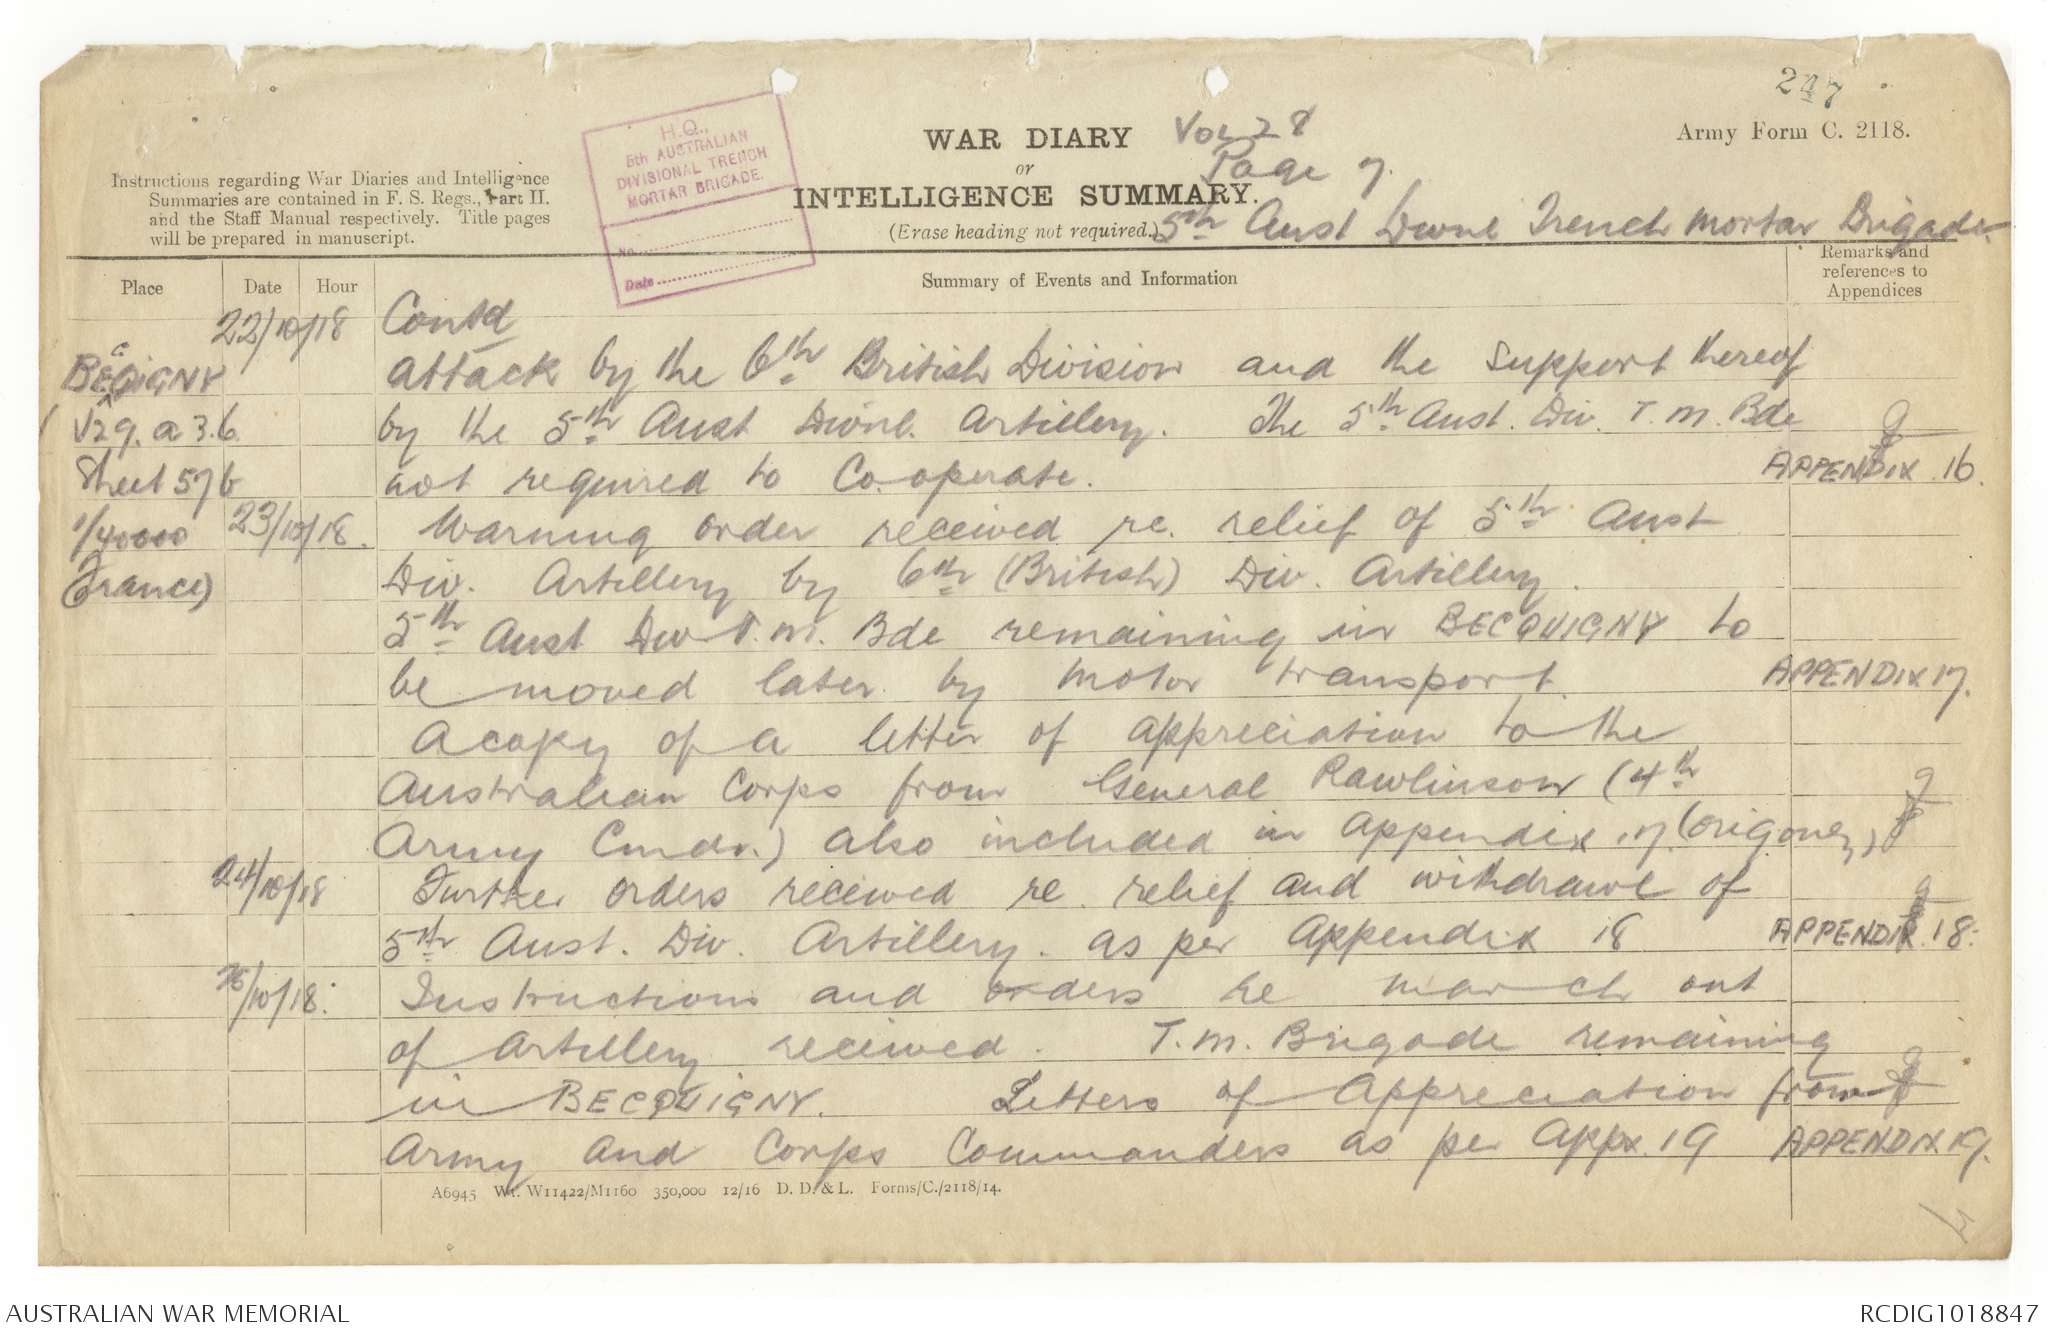 247
Army Form C. 2118.
WAR DIARY
or
INTELLIGENCE SUMMARY.
(Erase heading not required.)
Vol 28
Page 7.
5th Aust Divnl Trench Mortar Brigade
Instructions regarding War Diaries and Intelligence
Summaries are contained in F. S. Regs., Part II.
and the Staff Manual respectively. Title pages
will be prepared in manuscript.
H.Q.,
5th AUSTRALIAN
DIVISIONAL TRENCH
MORTAR BRIGADE.
No.
Date
Place
Date
Hour
Summary of Events and Information
Remarks and
references to
Appendices
22/10/18 Contd
BECQIGNY attack by the 6th British Division and the support thereof
V29. a 3.6. by the 5th Aust Divnl. Artillery. The 5th Aust. Div. T. M. Bde
Sheet 57b not required to Co.operate. APPENDIX 16.
1/40000 23/10/18. Warning order received re. relief of 5th Aust
France) Div. Artillery by 6th (British) Div. Artillery.
5th Aust Div T. M. Bde remaining in BECQUIGNY to
be moved later by motor transport. APPENDIX 17.
A copy of a letter of appreciation to the
Australian Corps from General Rawlinson (4th
Army Cmdr.) also included in Appendix 17. (orig. only)
24/10/18 Further orders received re. relief and withdrawl of
5th Aust. Div. Artillery. as per Appendix 18 APPENDIX 18.
/10/18. Instructions and orders re march out
of Artillery received. T. M. Brigade remaining
in BECQUIGNY. Letters of Appreciation from
Army and Corps Commanders as per Appx. 19 APPENDIX 19.
A6945 Wt. W11422/M1160 350,000 12/16 D. D. & L. Forms/C./2118/14.
AUSTRALIAN WAR MEMORIAL
RCDIG1018847